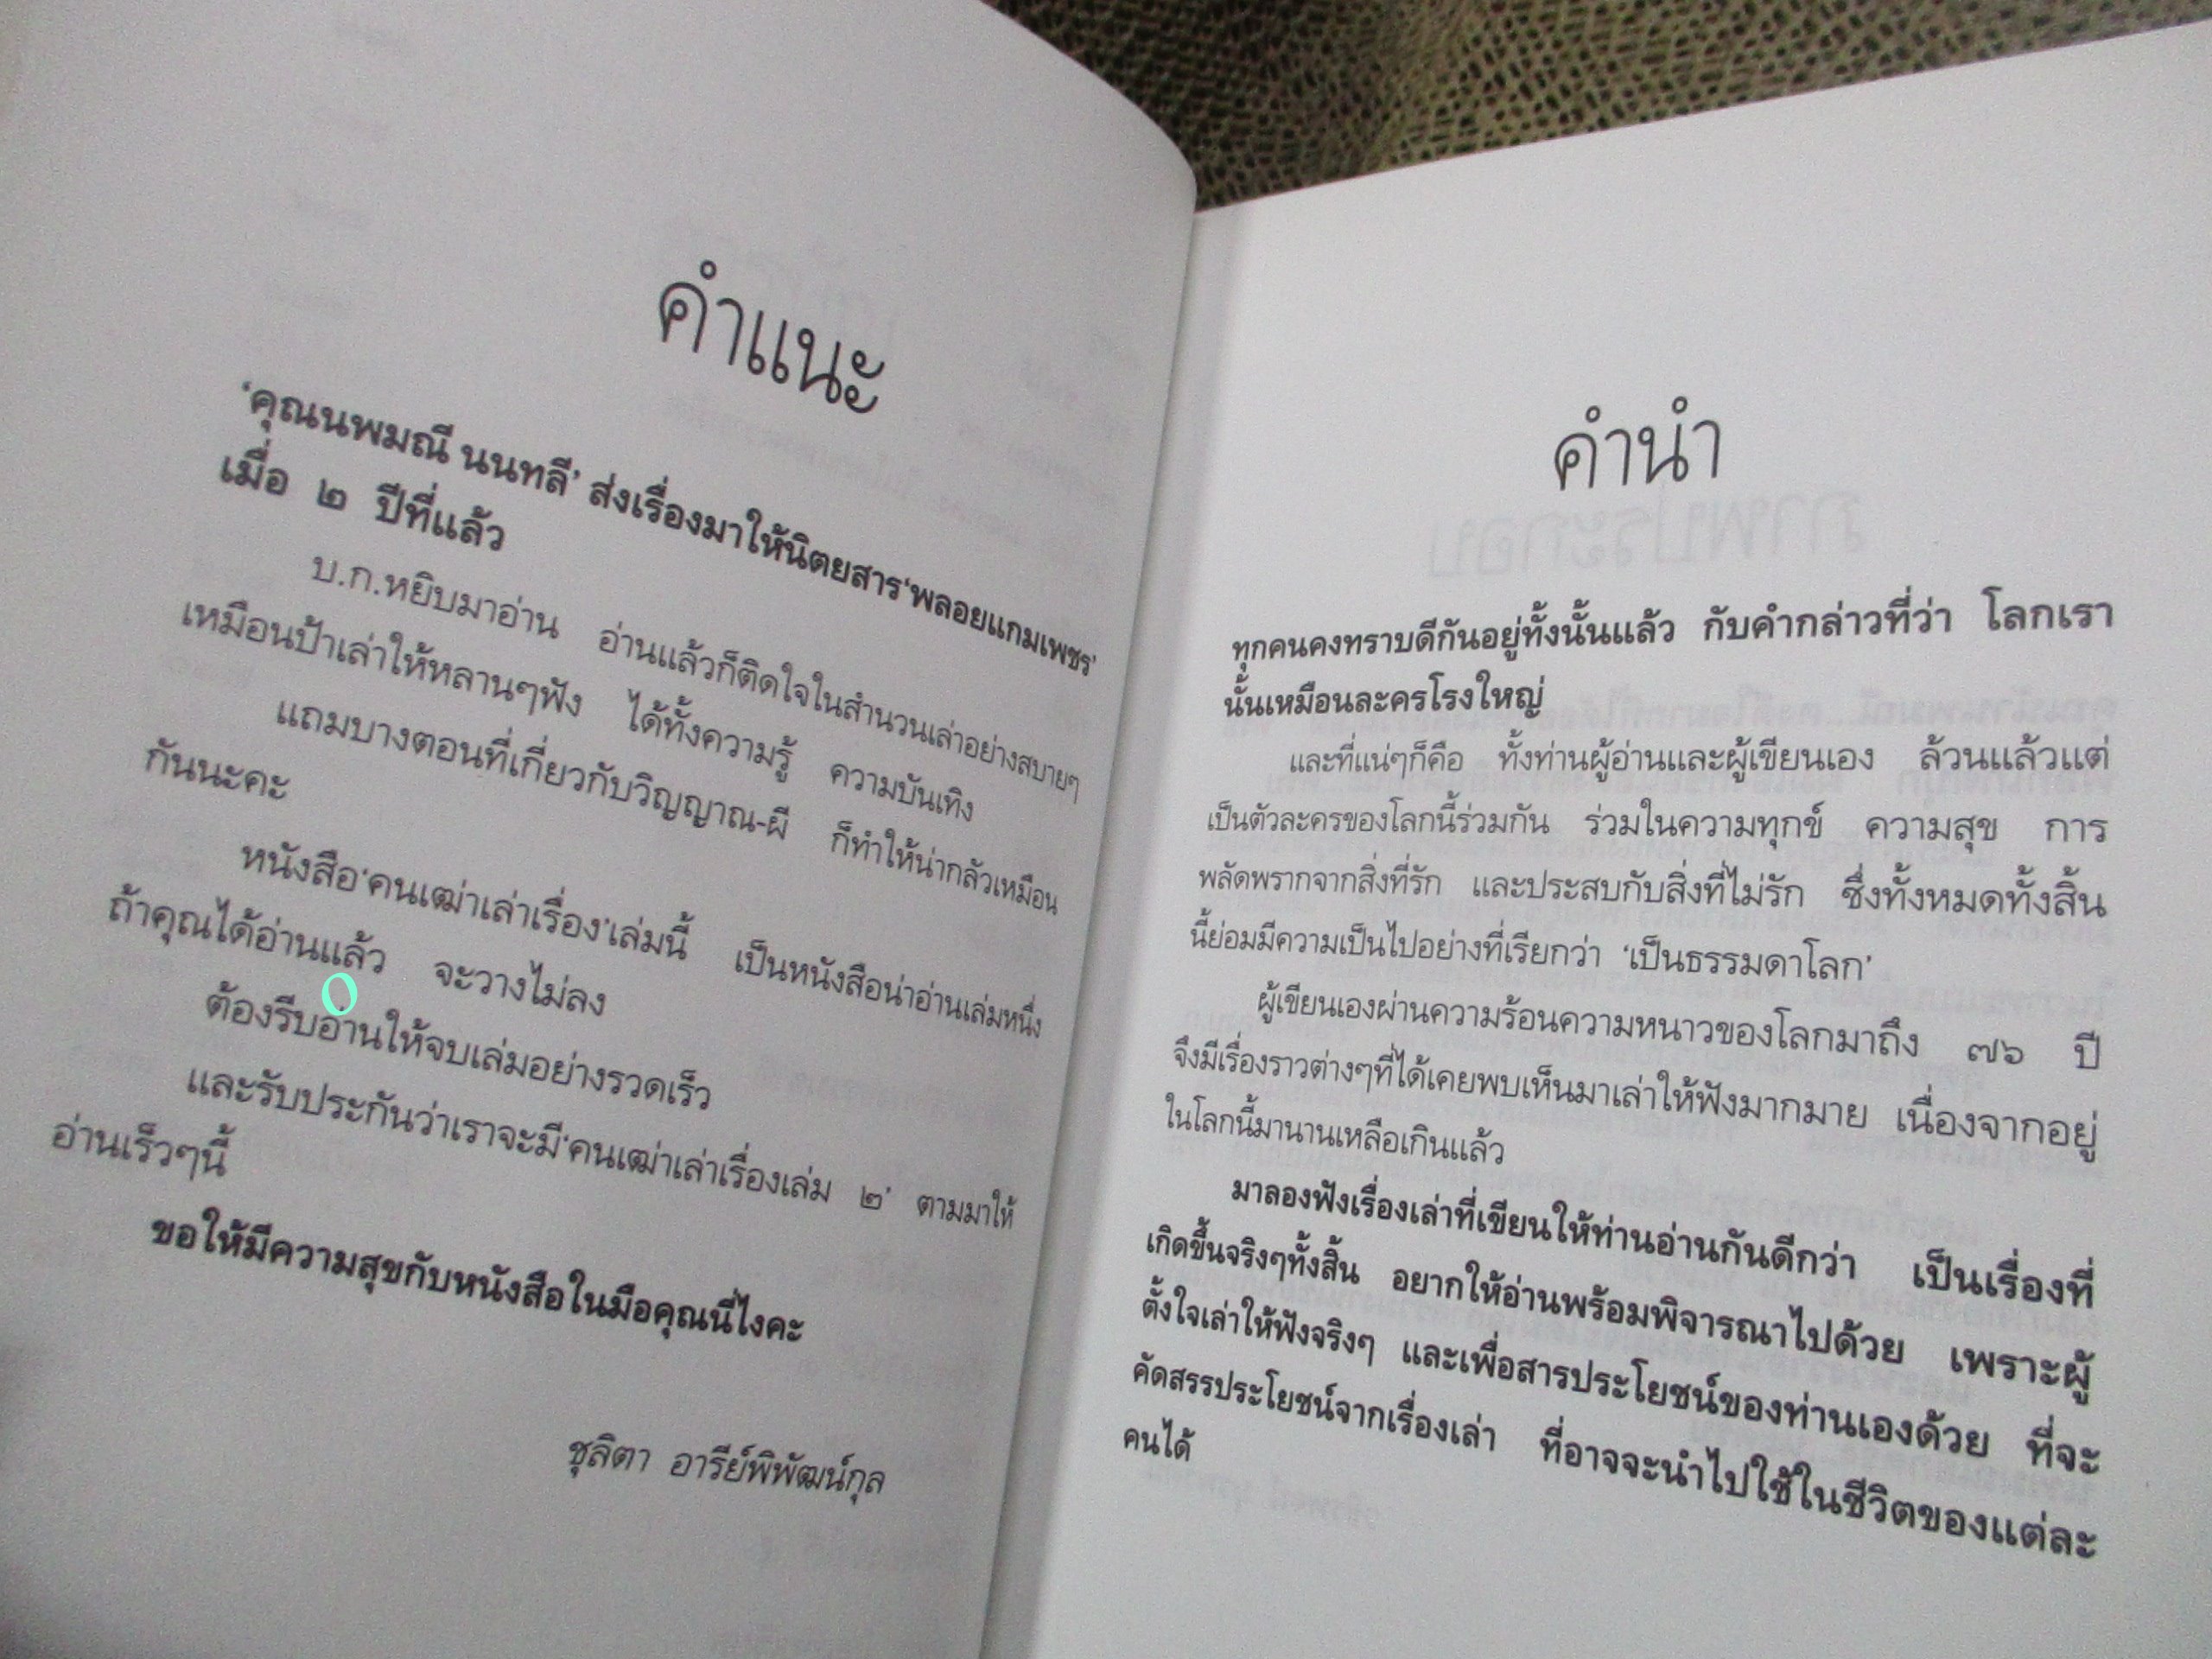 คำแนะ
‘คุณนพมณี นนทลี’ ส่งเรื่องมาให้นิตยสาร‘พลอยแกมเพชร’
เมื่อ ๒ ปีที่แล้ว
บ.ก.หยิบมาอ่าน อ่านแล้วก็ติดใจในสำนวนเล่าอย่างสบายๆ
เหมือนป้าเล่าให้หลานๆฟัง ได้ทั้งความรู้ ความบันเทิง
แถมบางตอนที่เกี่ยวกับวิญญาณ-ผี ก็ทำให้น่ากลัวเหมือน
กันนะคะ
หนังสือ‘คนเฒ่าเล่าเรื่อง’เล่มนี้ เป็นหนังสือน่าอ่านเล่มหนึ่ง
ถ้าคุณได้อ่านแล้ว จะวางไม่ลง
ต้องรีบอ่านให้จบเล่มอย่างรวดเร็ว
และรับประกันว่าเราจะมี‘คนเฒ่าเล่าเรื่องเล่ม ๒’ ตามมาให้
อ่านเร็วๆนี้
ขอให้มีความสุขกับหนังสือในมือคุณนี่ไงคะ
ชุลิตา อารีย์พิพัฒน์กุล
คำนำ
ทุกคนคงทราบดีกันอยู่ทั้งนั้นแล้ว กับคำกล่าวที่ว่า โลกเรา
นั้นเหมือนละครโรงใหญ่
และที่แน่ๆก็คือ ทั้งท่านผู้อ่านและผู้เขียนเอง ล้วนแล้วแต่
เป็นตัวละครของโลกนี้ร่วมกัน ร่วมในความทุกข์ ความสุข การ
พลัดพรากจากสิ่งที่รัก และประสบกับสิ่งที่ไม่รัก ซึ่งทั้งหมดทั้งสิ้น
นี้ย่อมมีความเป็นไปอย่างที่เรียกว่า ‘เป็นธรรมดาโลก’
ผู้เขียนเองผ่านความร้อนความหนาวของโลกมาถึง ๗๖ ปี
จึงมีเรื่องราวต่างๆที่ได้เคยพบเห็นมาเล่าให้ฟังมากมาย เนื่องจากอยู่
ในโลกนี้มานานเหลือเกินแล้ว
มาลองฟังเรื่องเล่าที่เขียนให้ท่านอ่านกันดีกว่า เป็นเรื่องที่
เกิดขึ้นจริงๆทั้งสิ้น อยากให้อ่านพร้อมพิจารณาไปด้วย เพราะผู้
ตั้งใจเล่าให้ฟังจริงๆ และเพื่อสารประโยชน์ของท่านเองด้วย ที่จะ
คัดสรรประโยชน์จากเรื่องเล่า ที่อาจจะนำไปใช้ในชีวิตของแต่ละ
คนได้